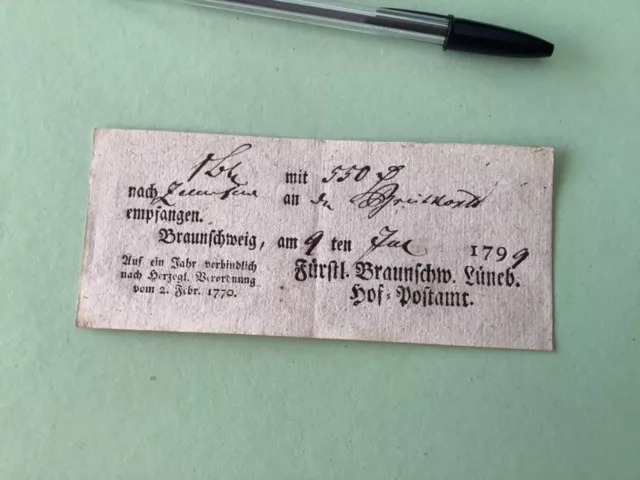 mit 550
nach an
empfangen.
Braunschweig, am 9 ten 1799
Auf ein Jahr verbindlich
nach Herzogl. Verordnung
vom 2. Febr. 1770.
Fürstl. Braunschw. Lüneb.
Hof-Postamt.